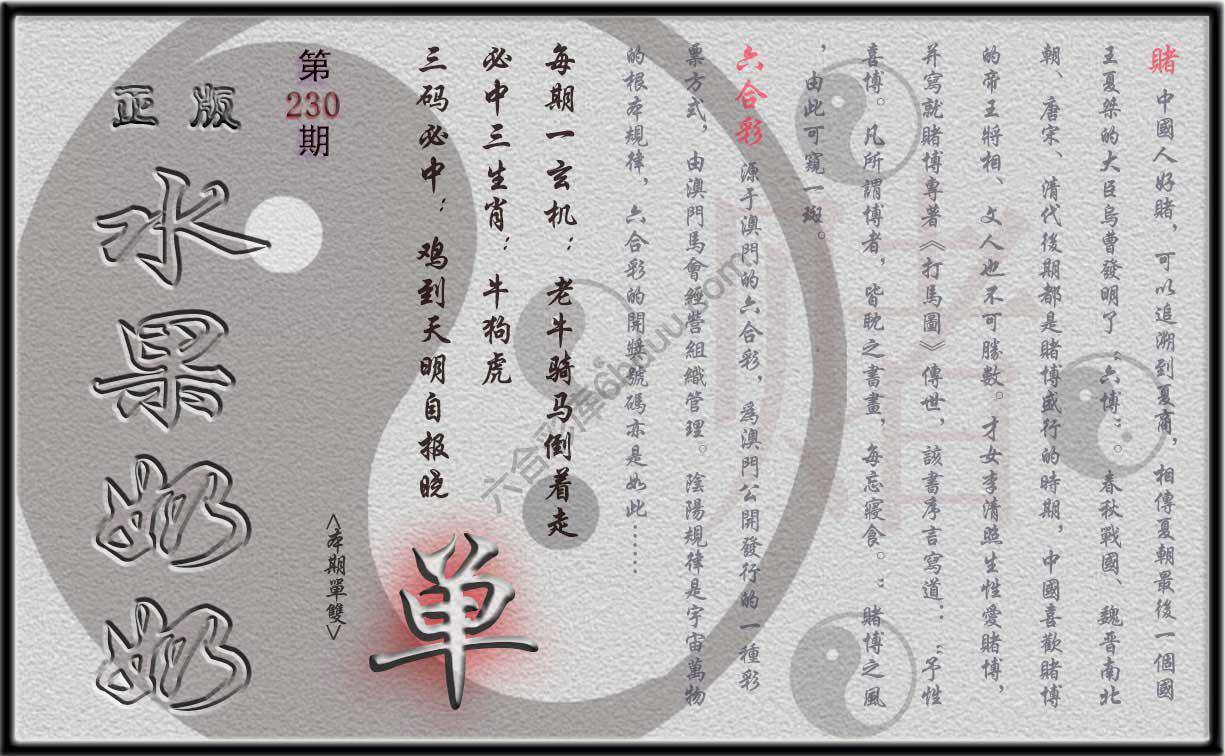 賭 中國人好賭，可以追溯到夏商，相傳夏朝最後一個國
王夏桀的大臣烏曹發明了“六博”。春秋戰國、魏晋南北
朝、唐宋、清代後期都是賭博盛行的時期，中國喜歡賭博
的帝王將相、文人也不可勝數。才女李清照生性愛賭博，
并寫就賭博專著《打馬圖》傳世，該書序言寫道：“予性
喜博。凡所謂博者，皆眈之書畫，每忘寢食。：賭博之風
，由此可窺一斑。
六合彩 源于澳門的六合彩，爲澳門公開發行的一種彩
票方式，由澳門馬會經營組織管理。陰陽規律是宇宙萬物
的根本規律，六合彩的開獎號碼亦是如此……
每期一玄机：老牛骑马倒着走
必中三生肖：牛狗虎
三码必中：鸡到天明自报晓
单
<本期單雙>
第
230
期
正版
水果奶奶
賭
六合彩库6huuu.com